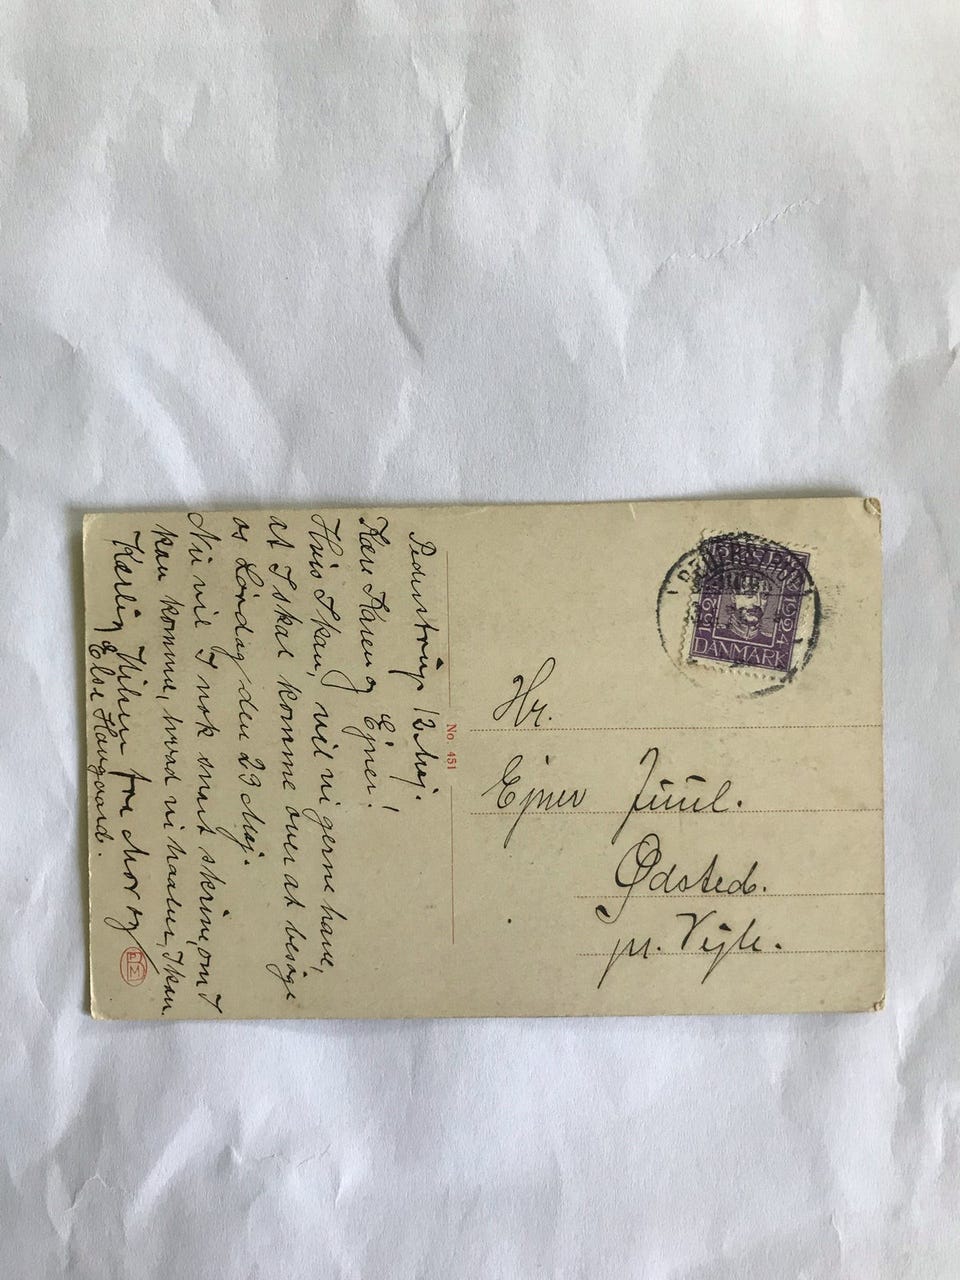 Pederstrup 12 Maj.
Kære Karen og Ejner!
Hvis I kan, vil vi gerne have,
at I skal komme over at besøge
os Lørdag den 23 Maj.
Nu vil I nok snart skrive, om I
kan komme, hvad vi haaber, I kan.
Kærlig Hilsen fra Mor og
Else Haugaard.
No 451
Hr.
Ejner Juul.
Ødsted.
pr. Vejle.
1624 1924
DANMARK